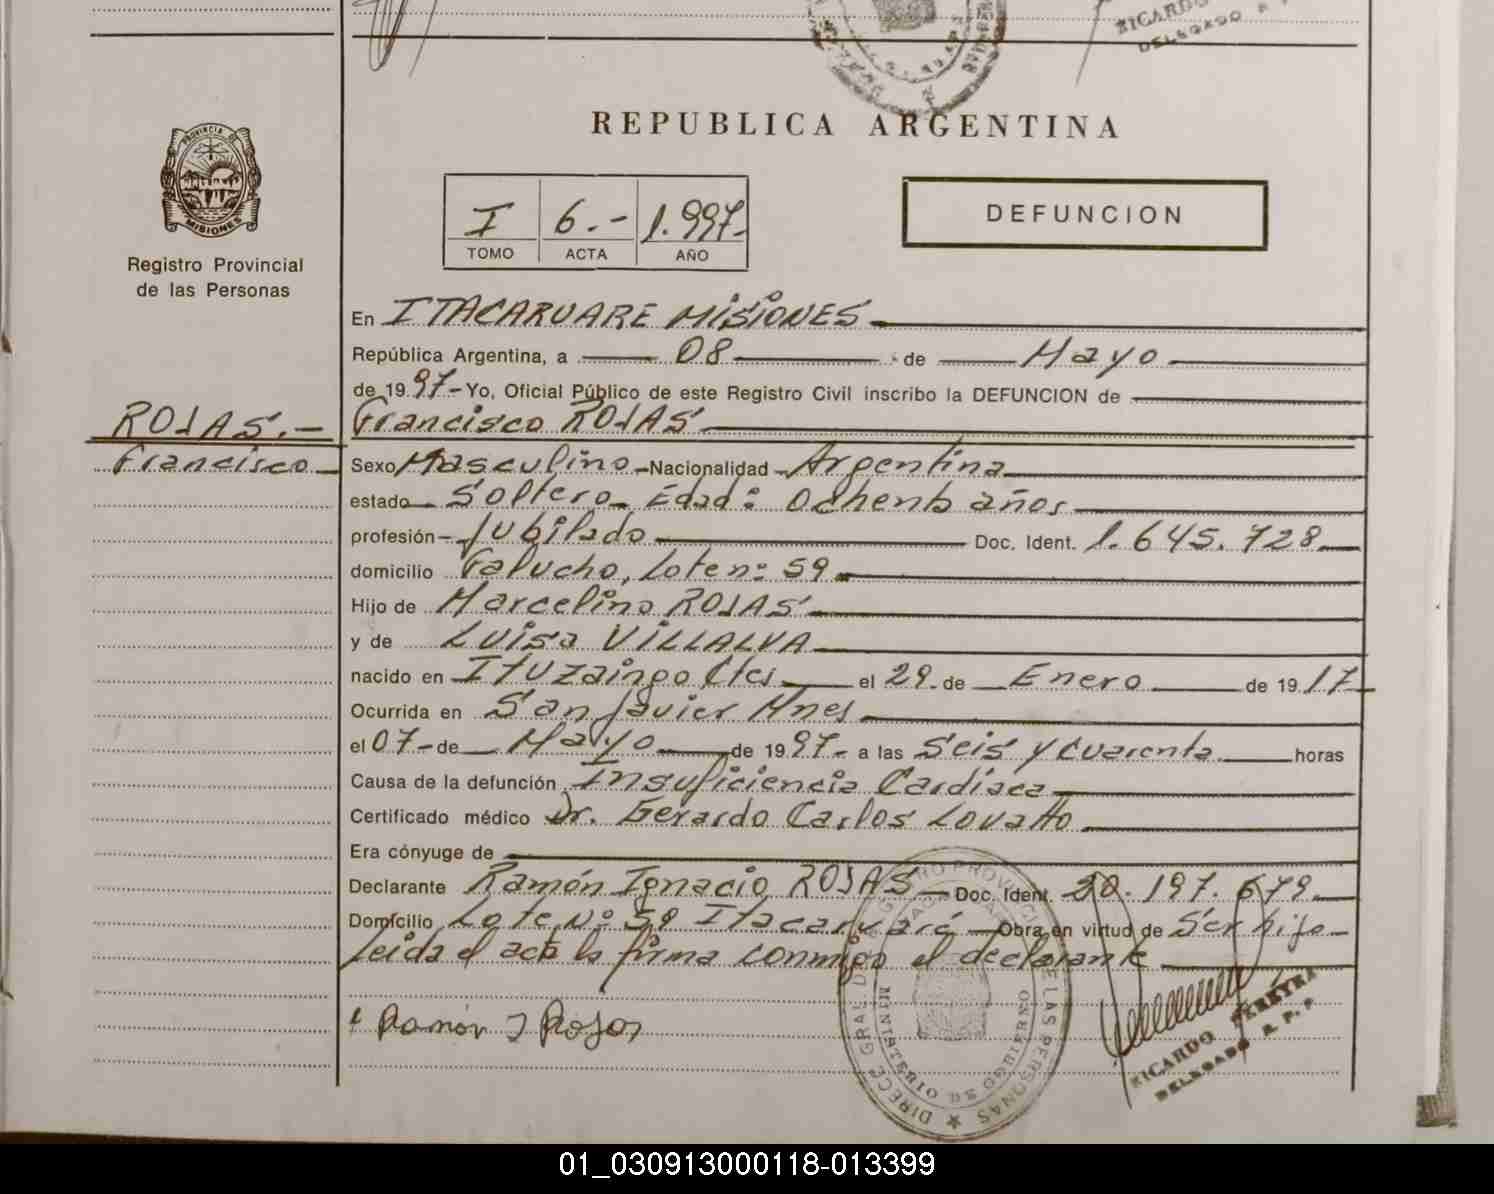 RICARDO
DELEGADO R. P.
PROVINCIA DE
MISIONES
Registro Provincial
de las Personas
REPUBLICA ARGENTINA
I 6.- 1.997.-
TOMO ACTA AÑO
DEFUNCION
En ITACARUARE MISIONES
República Argentina, a 08 de Mayo
de 1997- Yo, Oficial Público de este Registro Civil inscribo la DEFUNCION de
ROJAS.-
Francisco
Francisco ROJAS
Sexo Masculino - Nacionalidad - Argentina
estado Soltero - Edad: Ochenta años
profesión - Jubilado Doc. Ident. 1.645.728
domicilio Lote nº 59
Hijo de Marcelino ROJAS
y de LUISA VILLALVA
nacido en Ituzaingo Ctes el 29 de Enero de 1917
Ocurrida en San Javier Mnes
el 07- de Mayo de 1997- a las Seis y Cuarenta horas
Causa de la defunción Insuficiencia Cardíaca
Certificado médico Dr. Gerardo Carlos Lovatto
Era cónyuge de
Declarante Ramón Ignacio ROJAS - Doc. Ident. 20.197.679
Domicilio Lote Nº 59 Itacaruaré - Obra en virtud de Ser hijo -
Leida el acta la firma conmigo el declarante
Ramón I Rojas
DIRECC GRAL DEL REGISTRO PROVINCIAL DE LAS PERSONAS
MINISTERIO DE GOBIERNO
RICARDO PEREYRA
DELEGADO R. P. P.
01_030913000118-013399